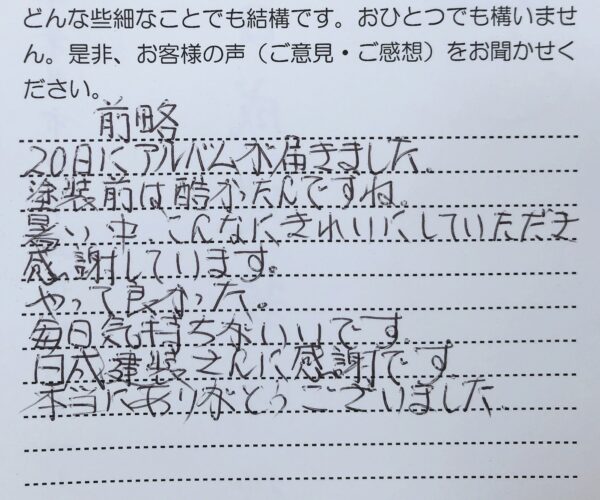 どんな些細なことでも結構です。おひとつでも構いませ
ん。是非、お客様の声（ご意見・ご感想）をお聞かせく
ださい。
前略
20日にアルバムが届きました。
塗装前は酷かったんですね。
暑い中、こんなにきれいにしていただき
感謝しています。
やって良かった。
毎日気持ちがいいです。
白成建装さんに感謝です
本当にありがとうございました